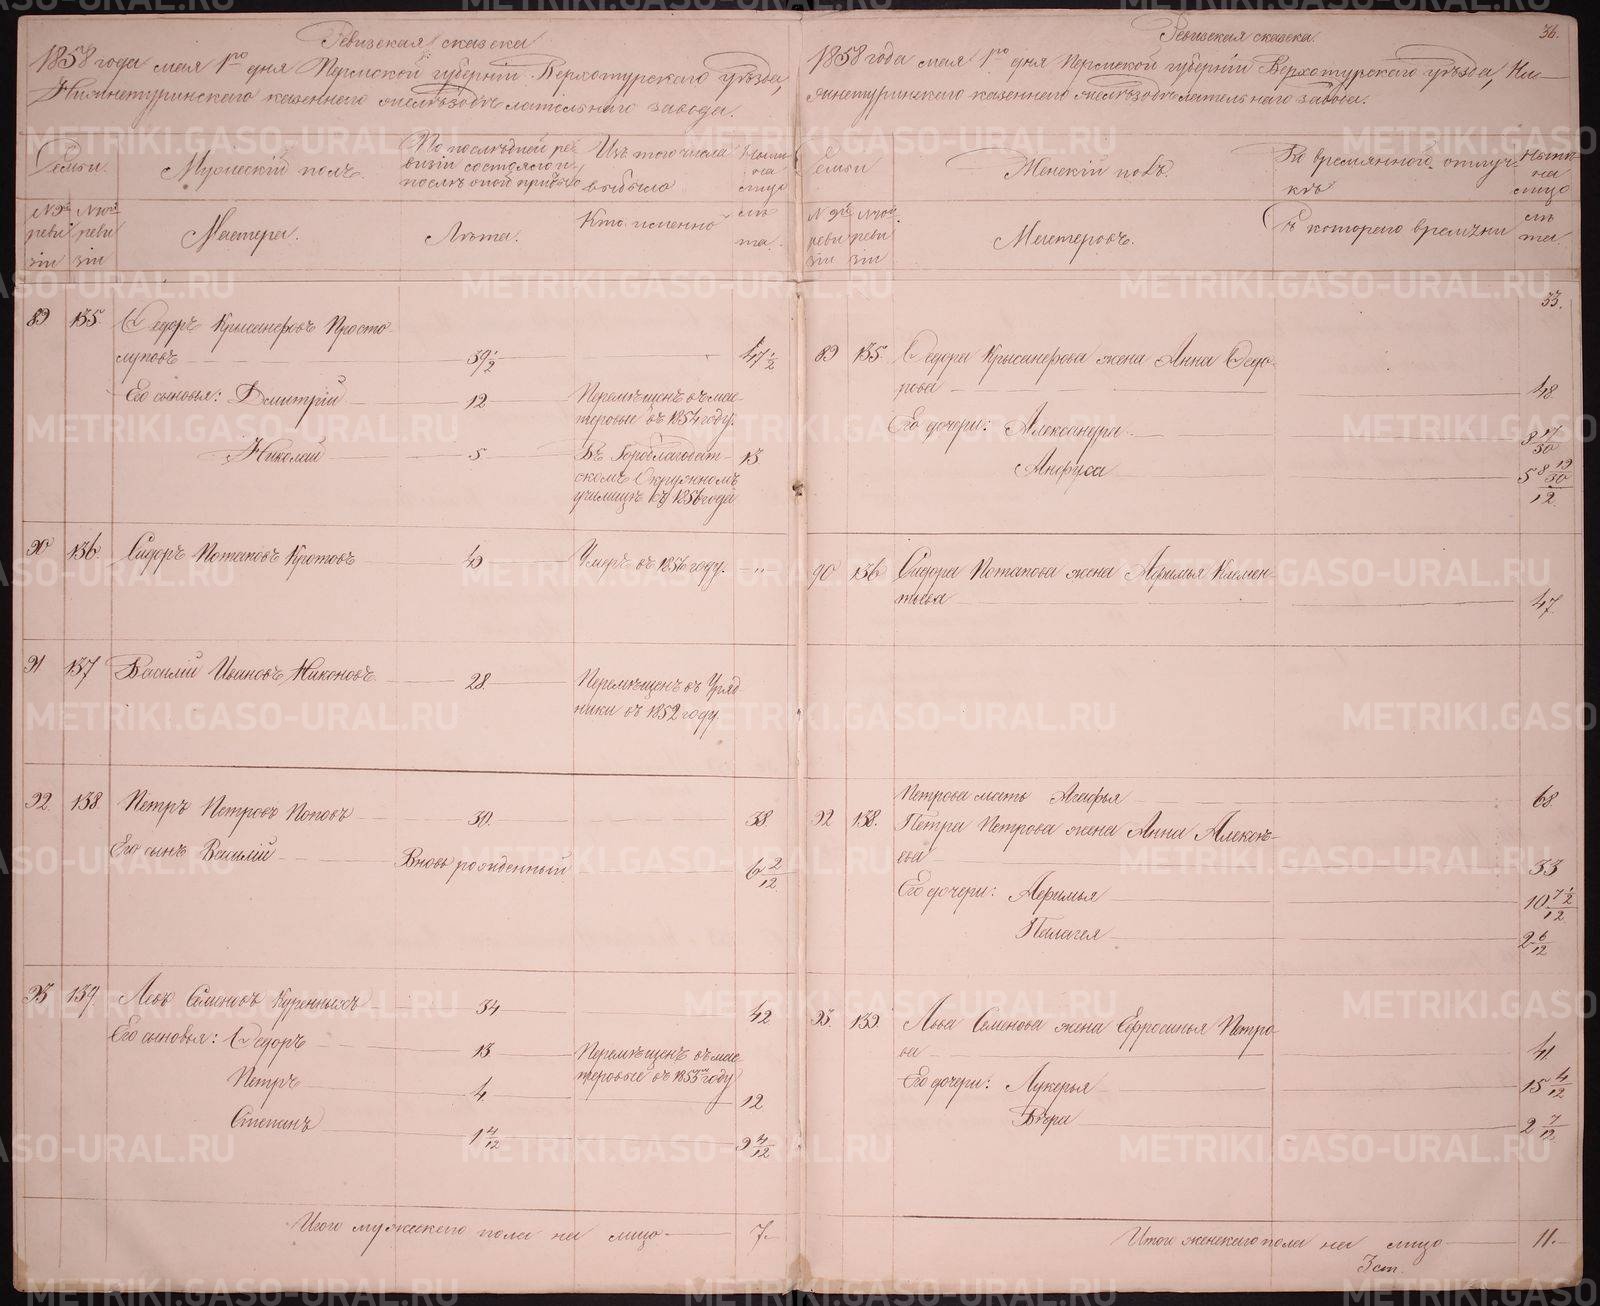 Ревизская сказка
1858 года мая 1го дня Пермской губерніи Верхотурскаго уѣзда,
Нижнетуринскаго казеннаго желѣзодѣлательнаго завода.
Семьи.
Мужескій полъ.
По послѣдней ре-
визіи состояло и
послѣ оной прибыло
Изъ того числа
выбыло
Нынѣ
на
лицо
№ 9й реви зіи
№ 10й реви зіи
Мастера.
Лѣта.
Кто именно
лѣ
та.
89 135. Федоръ Крысанфовъ Просто-
луповъ 39 1/2 47 1/2
Его сыновья: Дмитрій 12 Перемѣщенъ въ мас-
теровые въ 1854 году.
Николай 5 Въ Гороблагодат- 13
скомъ Окружномъ
училищѣ съ 1856 года
90 136. Сидоръ Потаповъ Кротовъ 45 Умеръ въ 1856 году. "
91 137 Василій Ивановъ Никоновъ 28. Перемѣщенъ въ Уряд-
ники въ 1852 году.
92. 138. Петръ Петровъ Поповъ 30. 38.
Его сынъ Василій Вновь рожденный 6 2/12
93 139. Левъ Семеновъ Куренныхъ 34 42
Его сыновья: Федоръ 13 Перемѣщенъ въ мас-
теровые въ 1853м году
Петръ 4 12
Степанъ 1 4/12 9 4/12
Итого мужескаго пола на лицо 7.
36.
Ревизская сказка.
1858 года мая 1го дня Пермской губерніи Верхотурскаго уѣзда, Ни-
жнетуринскаго казеннаго желѣзодѣлательнаго завода.
Семьи
Женскій полъ.
Въ временной отлуч-
кѣ
Нынѣ
на
лицо
№ 9й реви зіи
№ 10й реви зіи
Мастеровъ.
Съ котораго времени
лѣ
та.
33.
89 135. Федора Крысанфова жена Анна Федо-
рова 48.
Его дочери: Александра 8 17/30
Анфуса 5
12.
90 136 Сидора Потапова жена Афимья Климен-
тьева 47
Петрова мать Агафья 68.
92 138. Петра Петрова жена Анна Алексѣ-
ева 33
Его дочери: Афимья 10 7 1/2/12
Палагея 2 6/12
93. 139. Льва Семенова жена Ефросинья Петро-
ва 41
Его дочери: Лукерья 15 4/12
Вѣра 2 7/12
Итого женскаго пола на лицо 11.
METRIKI.GASO-URAL.RU